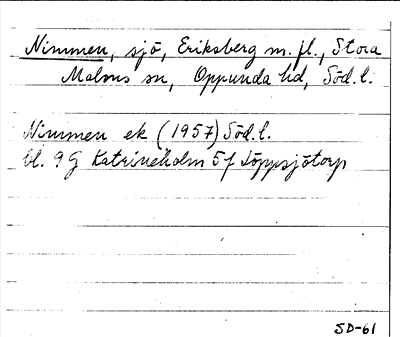 Nimmen, sjö, Eriksberg m. fl., Stora
Malms sn, Oppunda hd, Söd. l.
Nimmen ek (1957) Söd. l.
bl. 9 G Katrineholm 5 f Löppsjötorp
SD-61